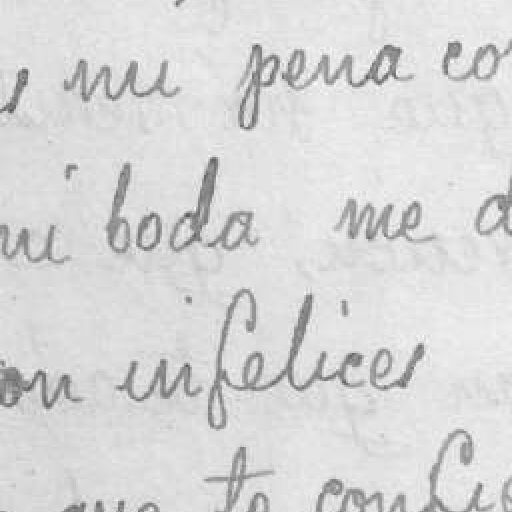 mi pena co
mi boda me d
on infelices
que te confie